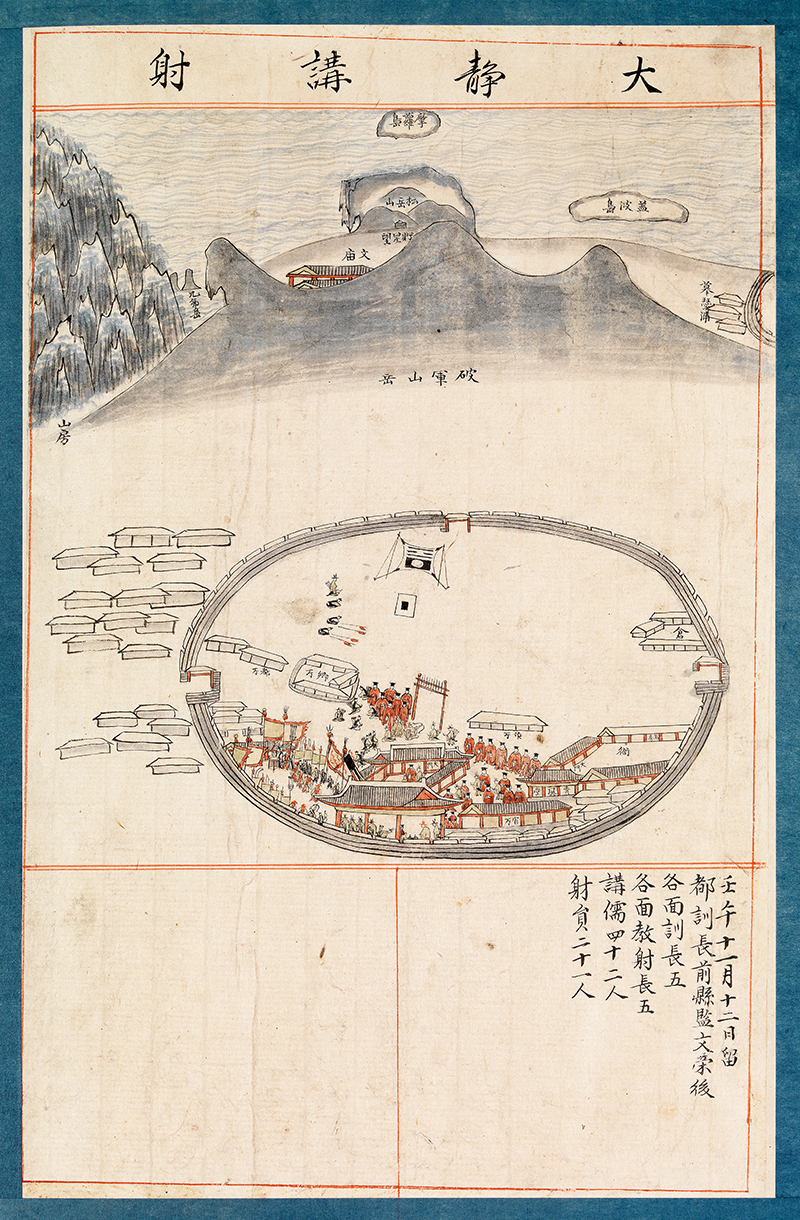 大静講射
摩羅島
松岳山
蓋波島
文廟
兄弟岳
破軍山岳
山房
倉
壬午十一月十二日留
都訓長前縣監文榮後
各面訓長五
各面教射長五
講儒四十二人
射員二十一人